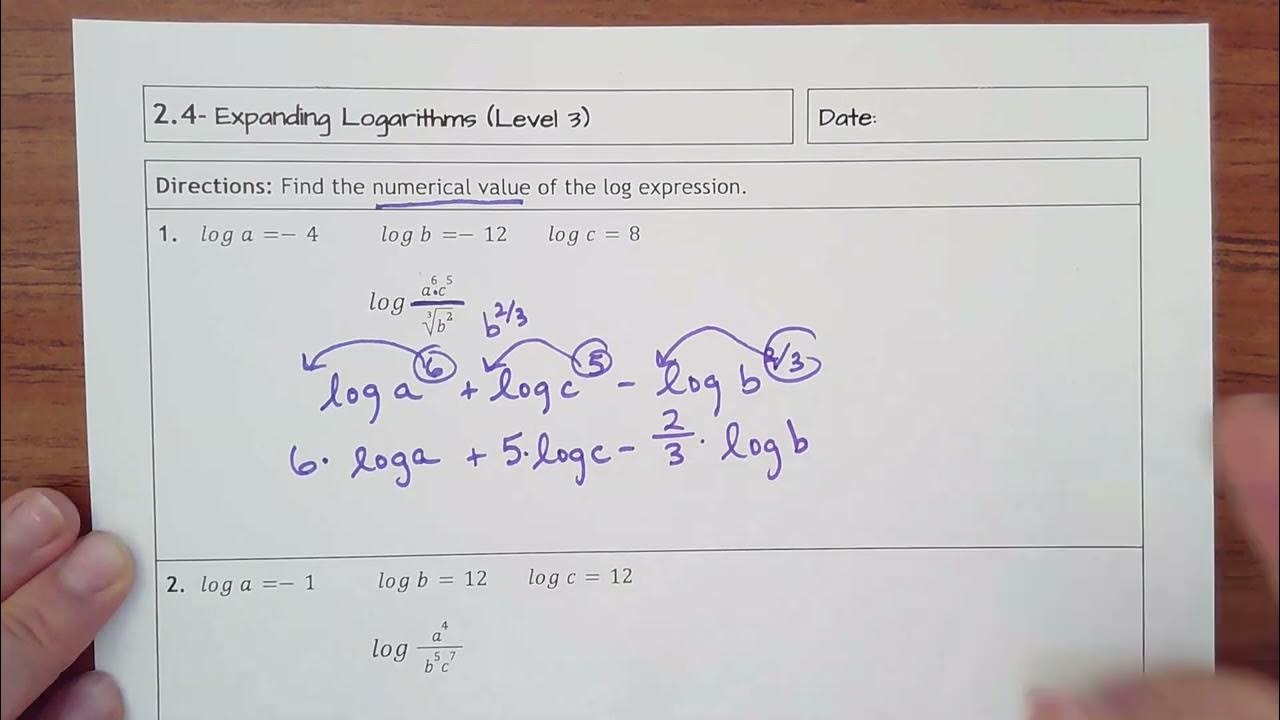 2.4- Expanding Logarithms (Level 3)
Date:
Directions: Find the numerical value of the log expression.
1. log a =− 4 log b =− 12 log c = 8
log a⁶•c⁵ / ∛b² b^2/3
log a⁶ + log c⁵ − log b^2/3
6· log a + 5·log c − 2/3 · log b
2. log a =− 1 log b = 12 log c = 12
log a⁴ / b⁵c⁷